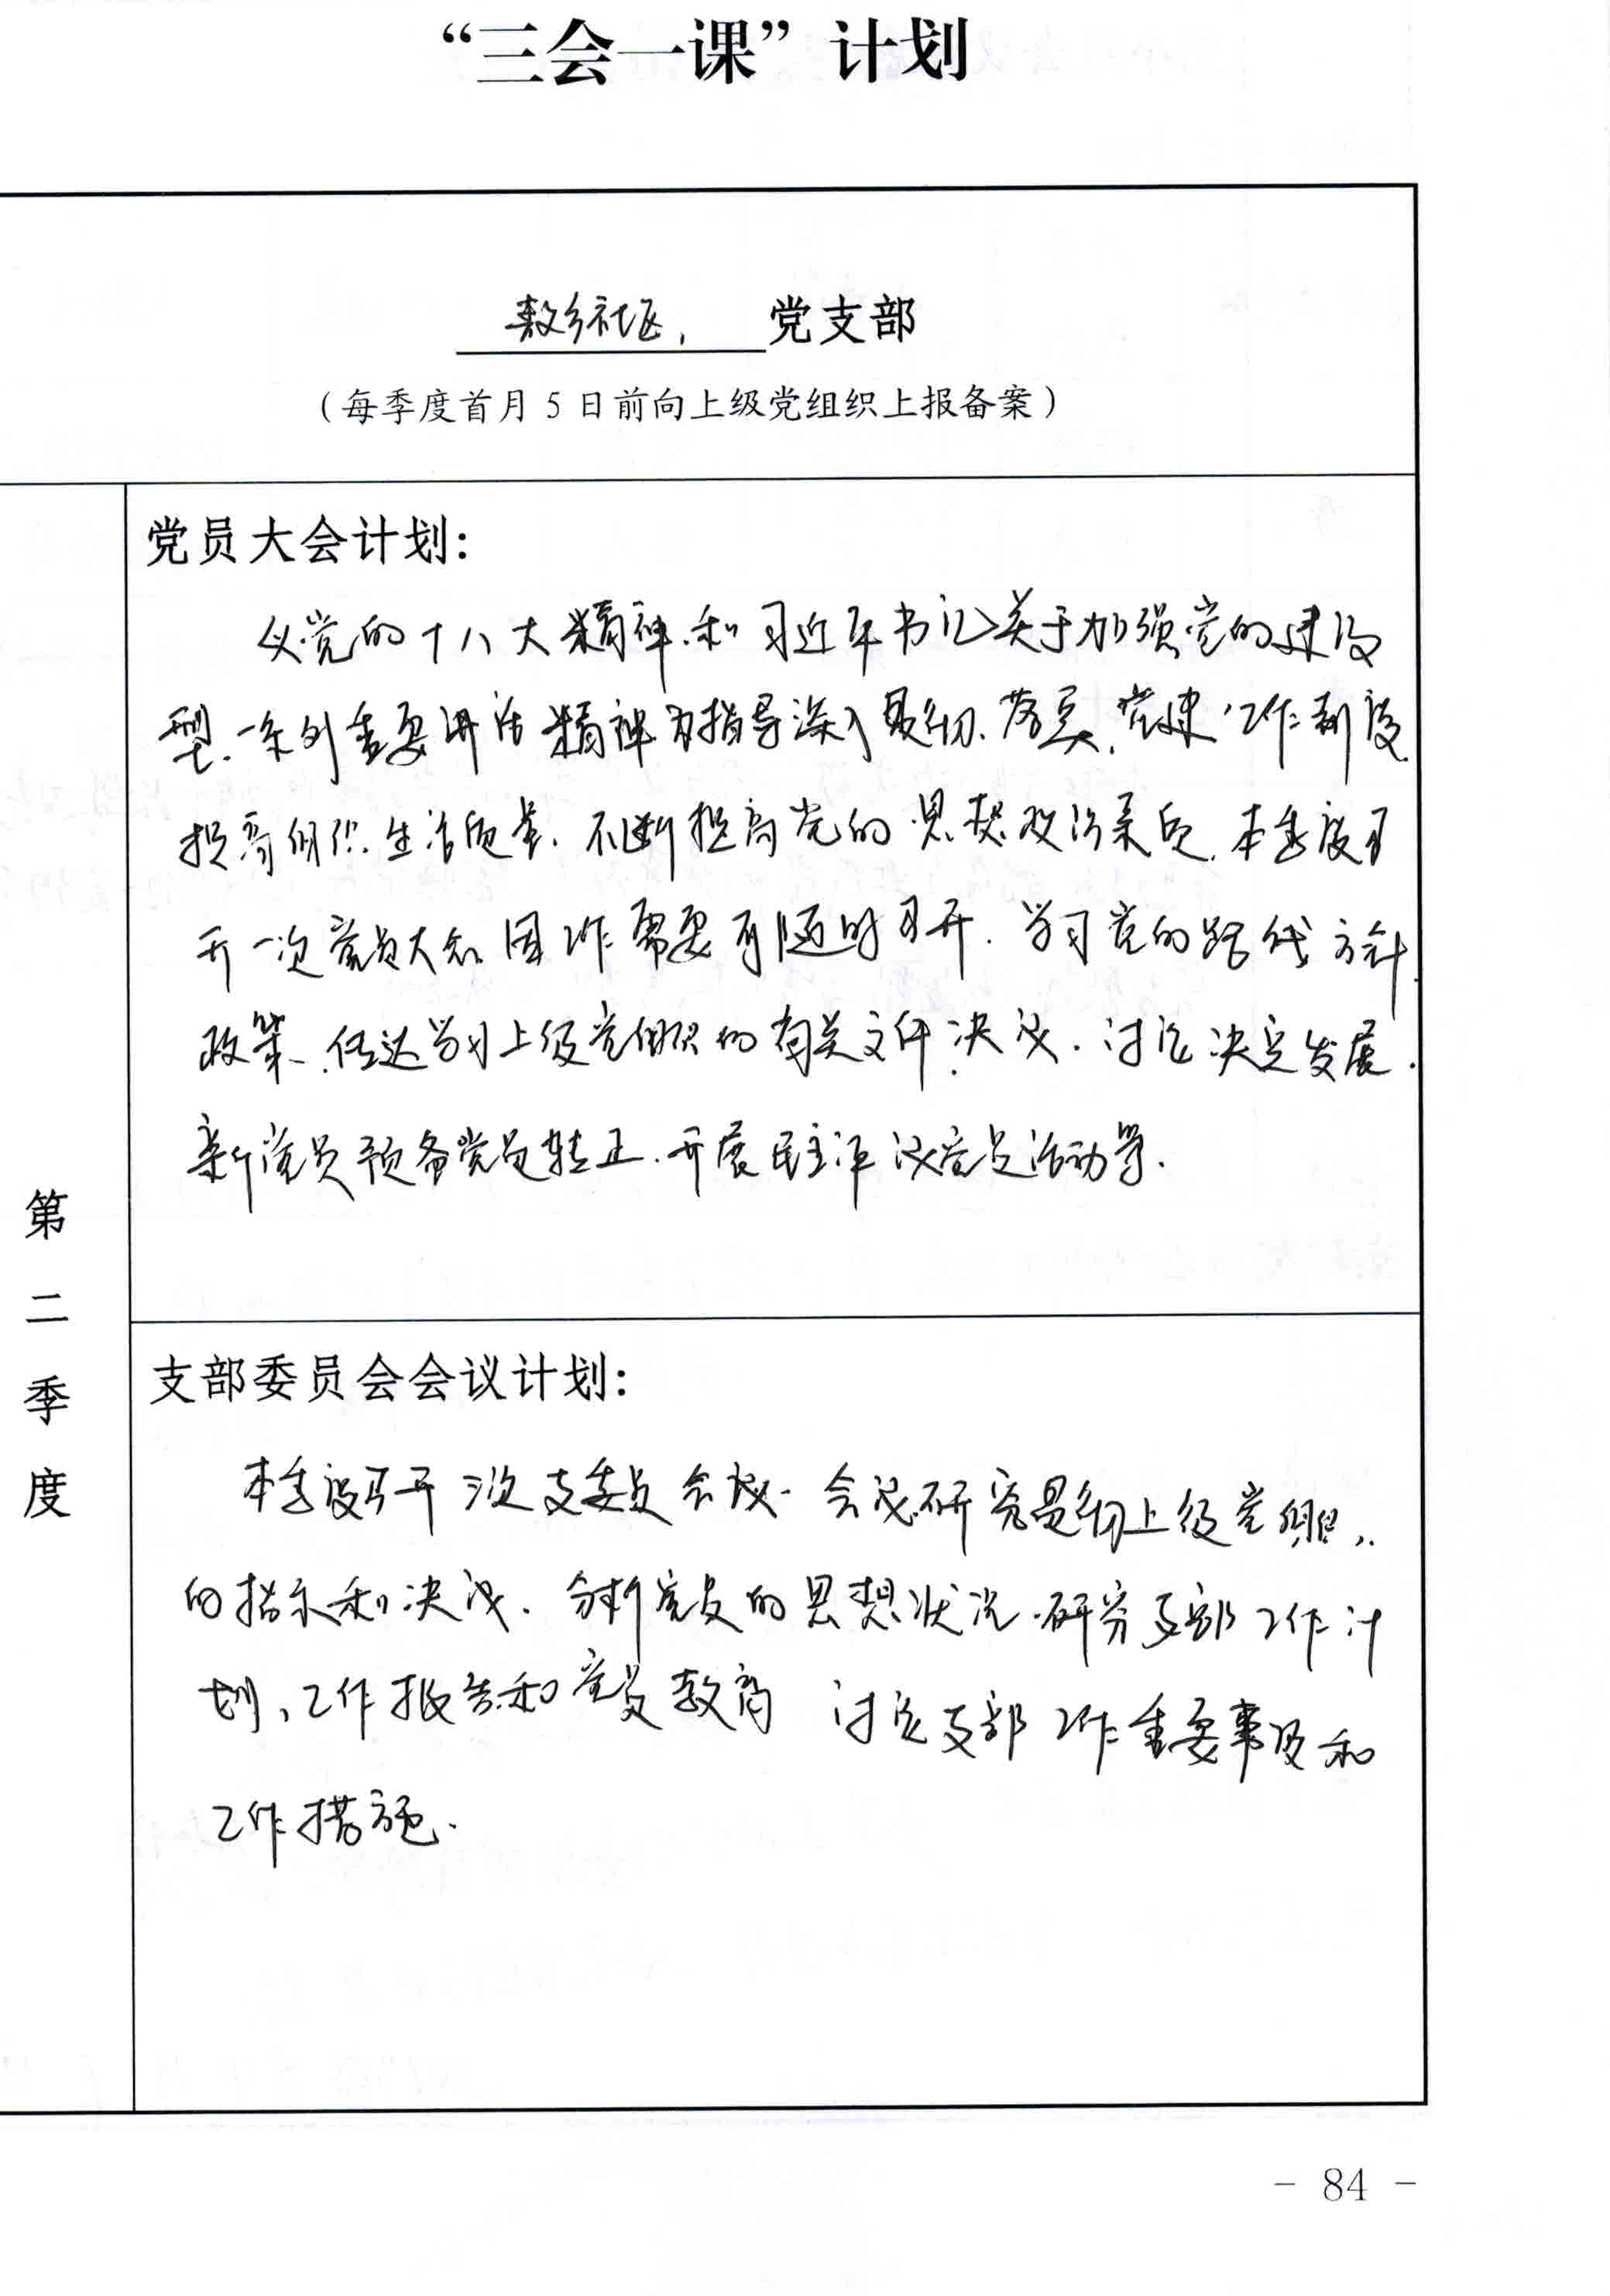 “三会一课”计划
社区,党支部
（每季度首月5日前向上级党组织上报备案）
党员大会计划：
以党的十八大精神.和习近平书记关于加强党的建设
型.一系列重要讲话精神为指导深入贯彻.落实.党建工作制度.
提高组织生活质量.不断提高党的思想政治素质.本季度召
开一次党员大会因工作需要可随时召开.学习党的路线方针
政策、传达学习上级党组织的有关文件.决议.讨论决定发展.
新党员预备党员转正.开展民主评议党员活动等.
第二季度
支部委员会会议计划：
本季度召开三次支委员会议.会议研究贯彻上级党组织
的指示和决议.分析党员的思想状况.研究支部工作计
划、工作报告和党员教育 讨论支部工作重要事项和
工作措施.
- 84 -